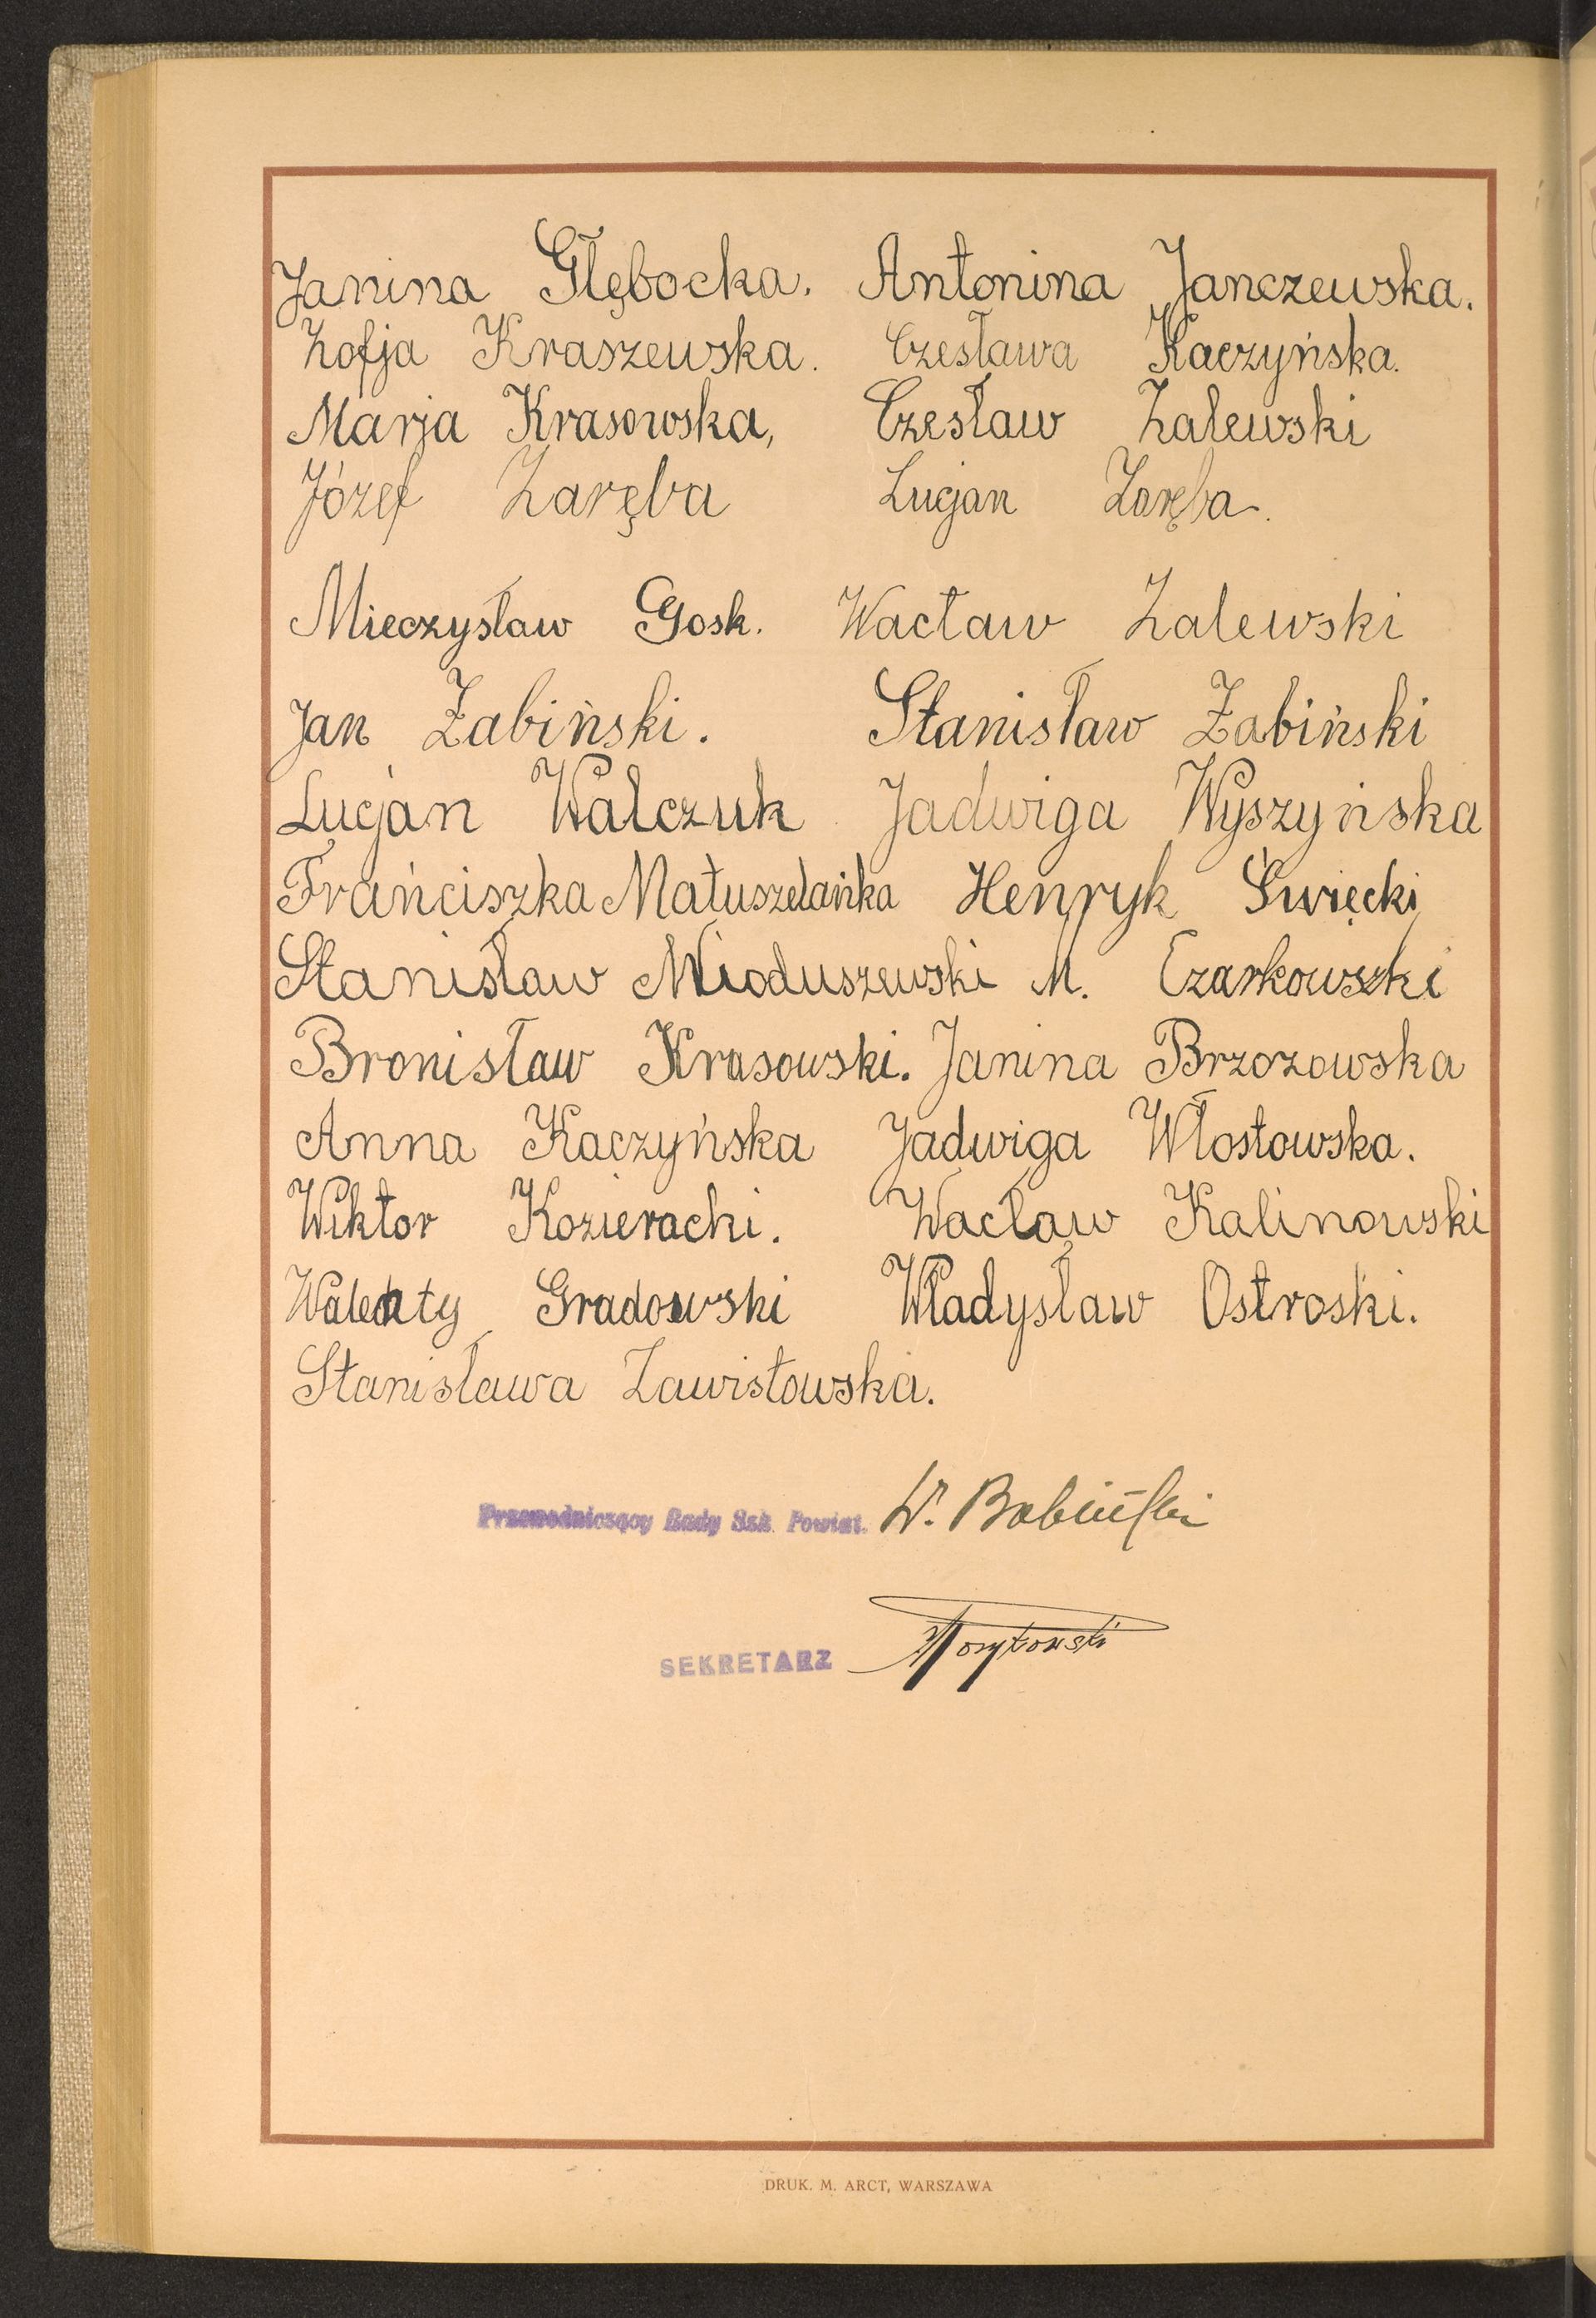 Janina Głębocka. Antonina Janczewska.
Zofja Kraszewska. Czesława Kaczyńska.
Marja Krasowska, Czesław Zalewski
Józef Zaręba Lucjan Zaręba.
Mieczysław Gosk. Wacław Zalewski
Jan Żabiński. Stanisław Żabiński
Lucjan Walczuk Jadwiga Wyszyńska
Franciszka Matuszelańka Henryk Święcki
Stanisław Nioduszewski M. Czarkowski
Bronisław Krasowski. Janina Brzozowska
Anna Kaczyńska Jadwiga Włostowska.
Wiktor Kozieracki. Wacław Kalinowski
Walenty Gradowski Władysław Ostroski.
Stanisława Zawistowska.
Przewodniczący Rady Szk. Powiat. W. Babiński
SEKRETARZ
DRUK. M. ARCT, WARSZAWA